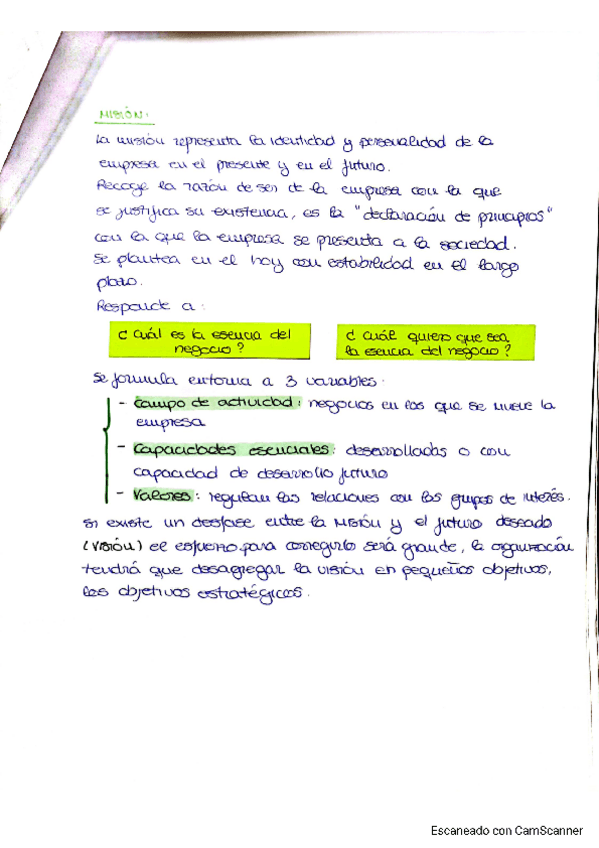 MISIÓN:
La misión representa la identidad y personalidad de la
empresa en el presente y en el futuro.
Recoge la razón de ser de la empresa con la que
se justifica su existencia, es la "declaración de principios"
con la que la empresa se presenta a la sociedad.
Se plantea en el hoy con estabilidad en el largo
plazo.
Responde a:
¿Cuál es la esencia del
negocio?
¿Cuál quiero que sea
la esencia del negocio?
Se formula entorno a 3 variables:
- Campo de actividad: negocios en los que se mueve la
empresa
- Capacidades esenciales: desarrolladas o con
capacidad de desarrollo futuro
- Valores: regulan las relaciones con los grupos de interés.
Si existe un desfase entre la misión y el futuro deseado
(visión) el esfuerzo para corregirlo será grande, la organización
tendrá que desagregar la visión en pequeños objetivos,
los objetivos estratégicos.
Escaneado con CamScanner